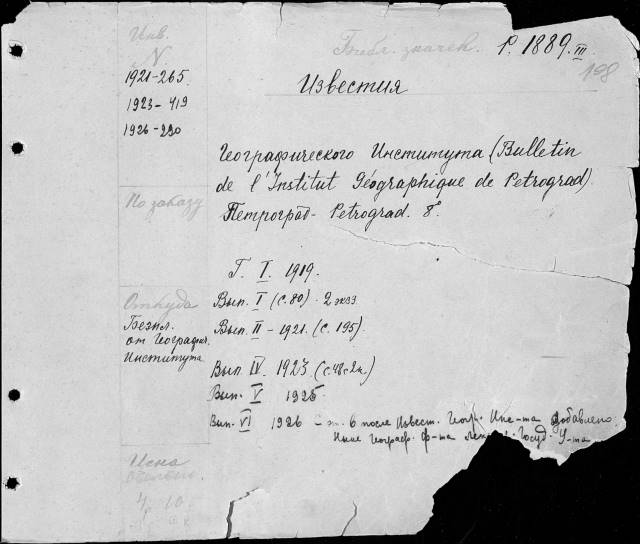 Инв.
N
1921-265.
1923-419
1926-290
Библ. значек. P. 1889. III
198
Известия
Географического Института (Bulletin
de l'Institut Géographique de Petrograd)
Петроград- Petrograd. 8°.
По заказу
Г. I. 1919.
Откуда
Безпл.
от Географич.
Института
Вып. I (с. 80). 2 экз
Вып. II - 1921. (с. 195).
Вып. IV. 1923 (с.
Вып. V 1925
Вып. VI 1926 - после Извест. Геогр. Инс-та добавлено
Ныне Географ. ф-та Госуд. У-та
Цена
4 10